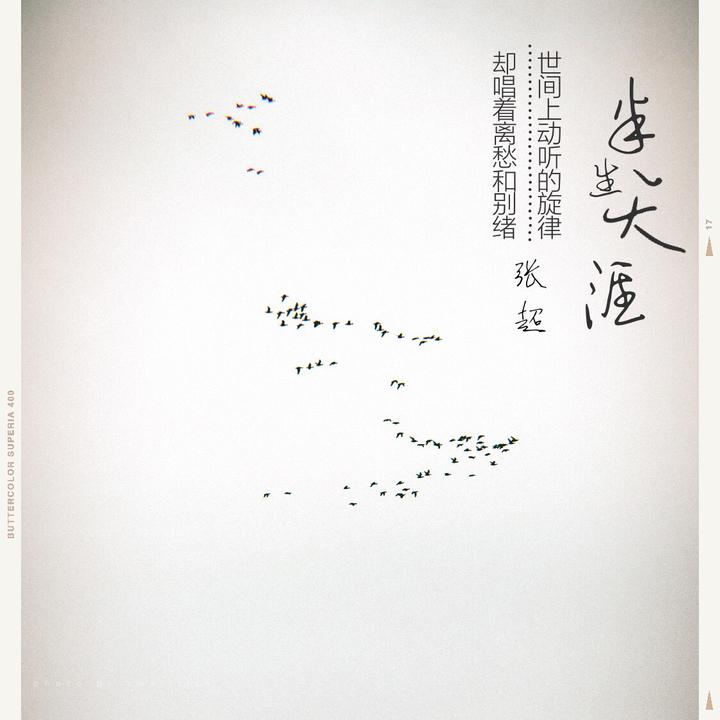 半生天涯
世间上动听的旋律
却唱着离愁和别绪
张超
BUTTERCOLOR SUPERIA 400
17